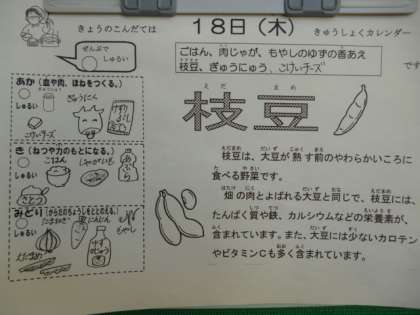 きょうのこんだては
18日(木)
きゅうしょくカレンダー
ぜんぶで
しゅるい
ごはん、肉じゃが、もやしのゆずの香あえ
枝豆、ぎゅうにゅう、こけいチーズ
です
あか(血や肉、ほねをつくる。)
しゅるい
ぎゅうにく
こけいチーズ
き(ねつや力のもとになる。)
しゅるい
ごはん
じゃがいも
あぶら
さとう
みどり(からだのちょうしをととのえる。)
しゅるい
たまねぎ
にんじん
えだまめ
もやし
枝豆
えだ まめ
枝豆は、大豆が熟す前のやわらかいころに
食べる野菜です。
畑の肉とよばれる大豆と同じで、枝豆には、
たんぱく質や鉄、カルシウムなどの栄養素が、
含まれています。また、大豆には少ないカロテン
やビタミンCも多く含まれています。